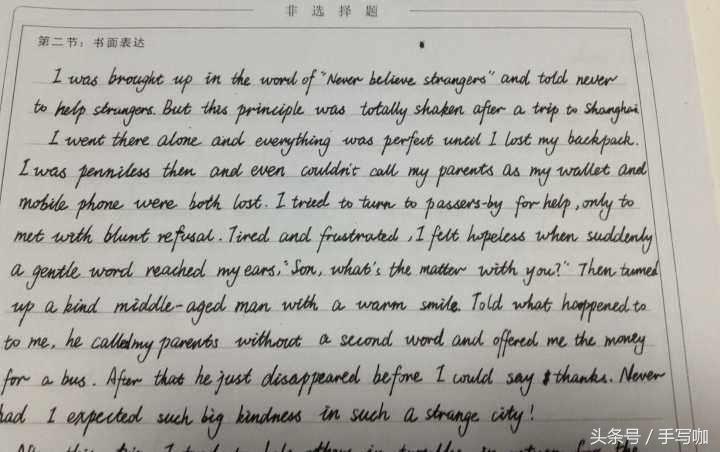 非选择题
第二节：书面表达
I was brought up in the word of "Never believe strangers" and told never
to help strangers. But this principle was totally shaken after a trip to Shanghai
I went there alone and everything was perfect until I lost my backpack.
I was penniless then and even couldn't call my parents as my wallet and
mobile phone were both lost. I tried to turn to passers-by for help, only to
met with blunt refusal. Tired and frustrated, I felt hopeless when suddenly
a gentle word reached my ears, "Son, what's the matter with you?" Then turned
up a kind middle-aged man with a warm smile. Told what happened to
to me, he called my parents without a second word and offered me the money
for a bus. After that he just disappeared before I could say thanks. Never
had I expected such big kindness in such a strange city!
After this trip, I
头条号 / 手写咖